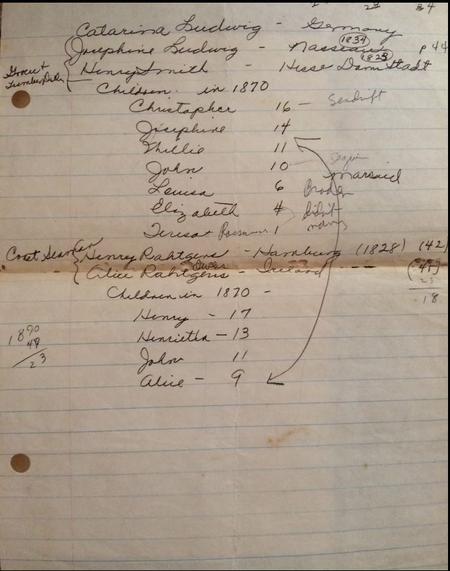 84
Catarina Ludwig - Germany
Josephine Ludwig - Nassau (1834) p 44
Grocer & Lumber Dealer { Henry Smith - Hesse Darmstadt (1823)
Children in 1870
Christopher 16 - Seadrift
Josephine 14
Willie 11
John 10
married
Louisa 6
Elizabeth 4 didn't marry
Teresa 1
Coast Seaman { Henry Rahtgens - Hamburg (1828) (42)
Alice Rahtgens - Ireland (41)
18
Children in 1870 -
Henry - 17
Henrietta - 13
John 11
Alice - 9
23